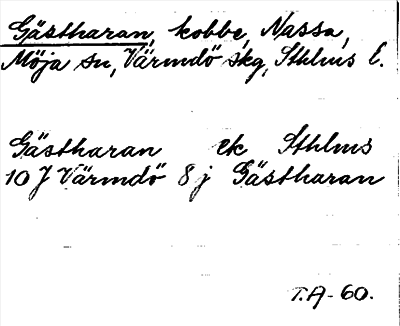 Gästharan, kobbe, Nassa,
Möja sn, Värmdö skg, Sthlms l.
Gästharan ek Sthlms
10 J Värmdö 8 j Gästharan
T.A-60.